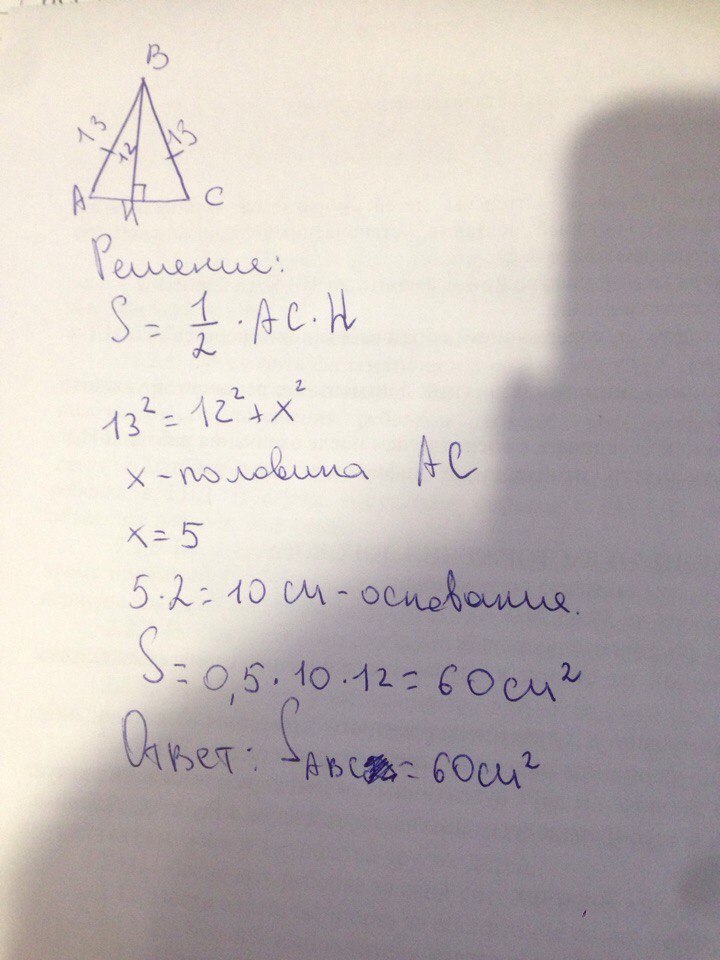 B
13 12 13
A H C
Решение:
S = 1/2 · AC · H
13² = 12² + x²
x - половина AC
x = 5
5·2 = 10 см - основания.
S = 0,5·10·12 = 60 см²
Ответ: S ABC = 60 см²